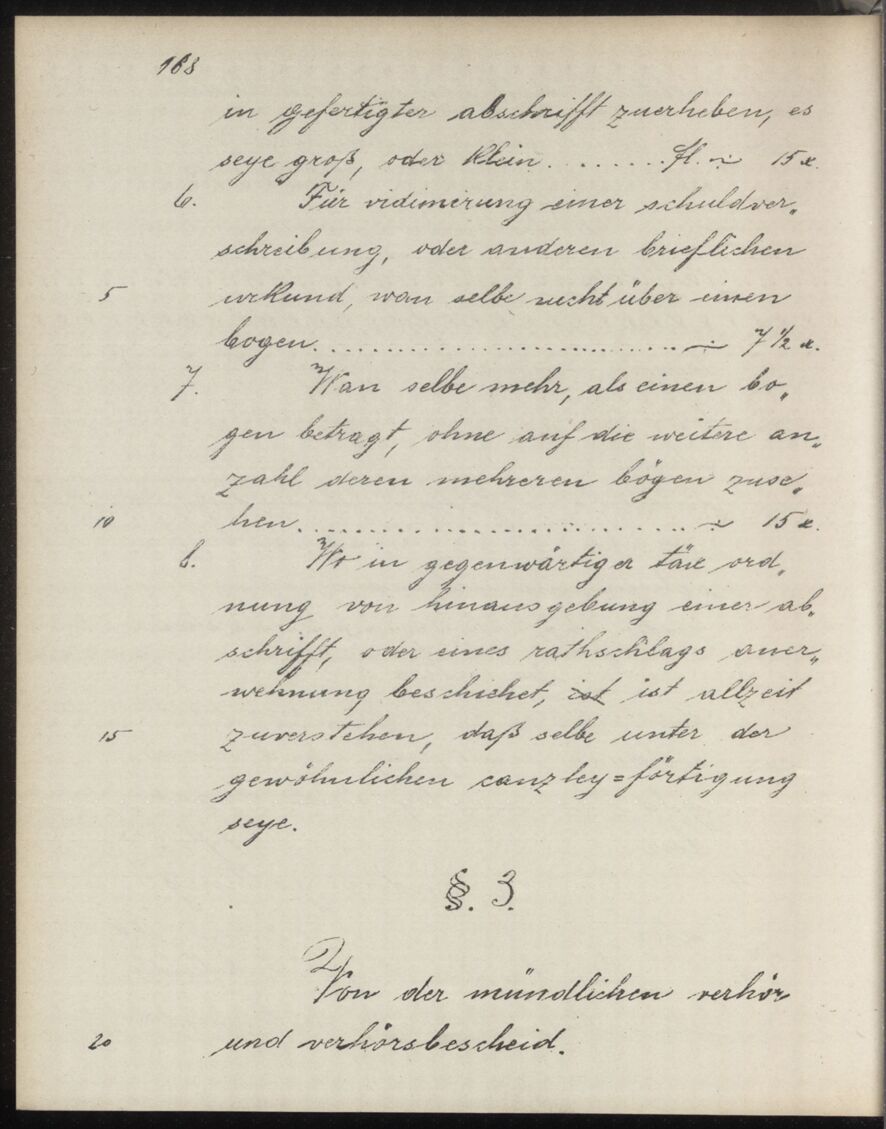 168
in gefertigter abschrifft zuerheben, es
seye groß, oder klein. . . . . . . fl. ÷ 15 x.
6. Für vidimirung einer schuldver„
schreibung, oder anderen brieflichen
5 urkund, wan selbe nicht über einen
bogen. . . . . . . . . . . . . . . . . . . . . . . . . ÷ 7 1/2 x.
7. Wan selbe mehr, als einen bo„
gen betragt, ohne auf die weitere an„
zahl deren mehreren bögen zuse„
10 hen. . . . . . . . . . . . . . . . . . . . . . . . . . ÷ 15 x.
8. Wo in gegenwärtiger täx ord„
nung von hinausgebung einer ab„
schrifft, oder eines rathschlags aner„
wehnung beschichet, ist ist allzeit
15 zuverstehen, daß selbe unter der
gewöhnlichen canzley=förtigung
seye.
§. 3.
Von der mündlichen verhör
20 und verhörsbescheid.